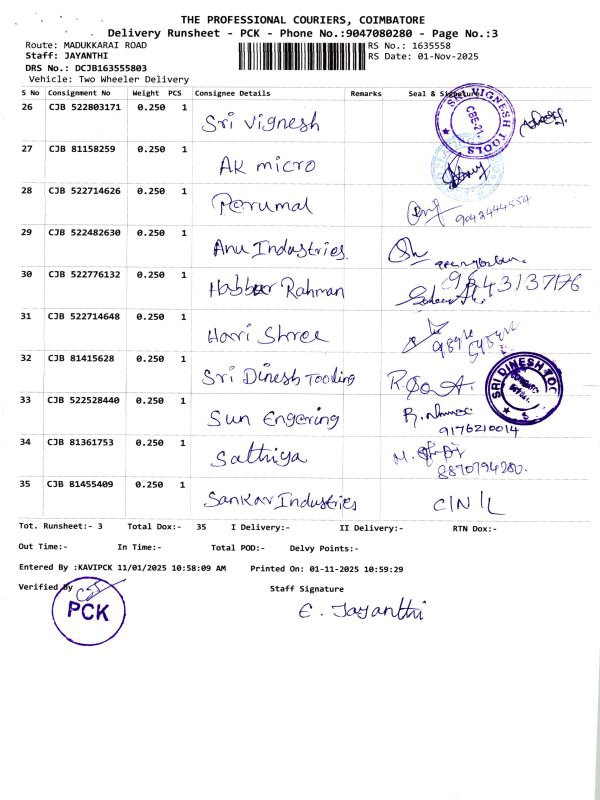 THE PROFESSIONAL COURIERS, COIMBATORE
Delivery Runsheet - PCK - Phone No.:9047080280 - Page No.:3
Route: MADUKKARAI ROAD RS No.: 1635558
Staff: JAYANTHI RS Date: 01-Nov-2025
DRS No.: DCJB163555803
Vehicle: Two Wheeler Delivery
S No Consignment No Weight PCS Consignee Details Remarks Seal & Signature
26 CJB 522803171 0.250 1 Sri Vignesh SRI VIGNESH TOOLS CBE-21.
27 CJB 81158259 0.250 1 AK micro
28 CJB 522714626 0.250 1 Perumal 9042444554
29 CJB 522482630 0.250 1 Anu Industries
30 CJB 522776132 0.250 1 Rahman 9843137176
31 CJB 522714648 0.250 1 Hari Shree
32 CJB 81415628 0.250 1 Sri Dinesh Tooling SRI DINESH
33 CJB 522528440 0.250 1 Sun Engering 9176210014
34 CJB 81361753 0.250 1 Sathiya 8870794280.
35 CJB 81455409 0.250 1 Sankar Industries
Tot. Runsheet:- 3 Total Dox:- 35 I Delivery:- II Delivery:- RTN Dox:-
Out Time:- In Time:- Total POD:- Delvy Points:-
Entered By :KAVIPCK 11/01/2025 10:58:09 AM Printed On: 01-11-2025 10:59:29
Verified By Staff Signature
PCK E. Jayanthi